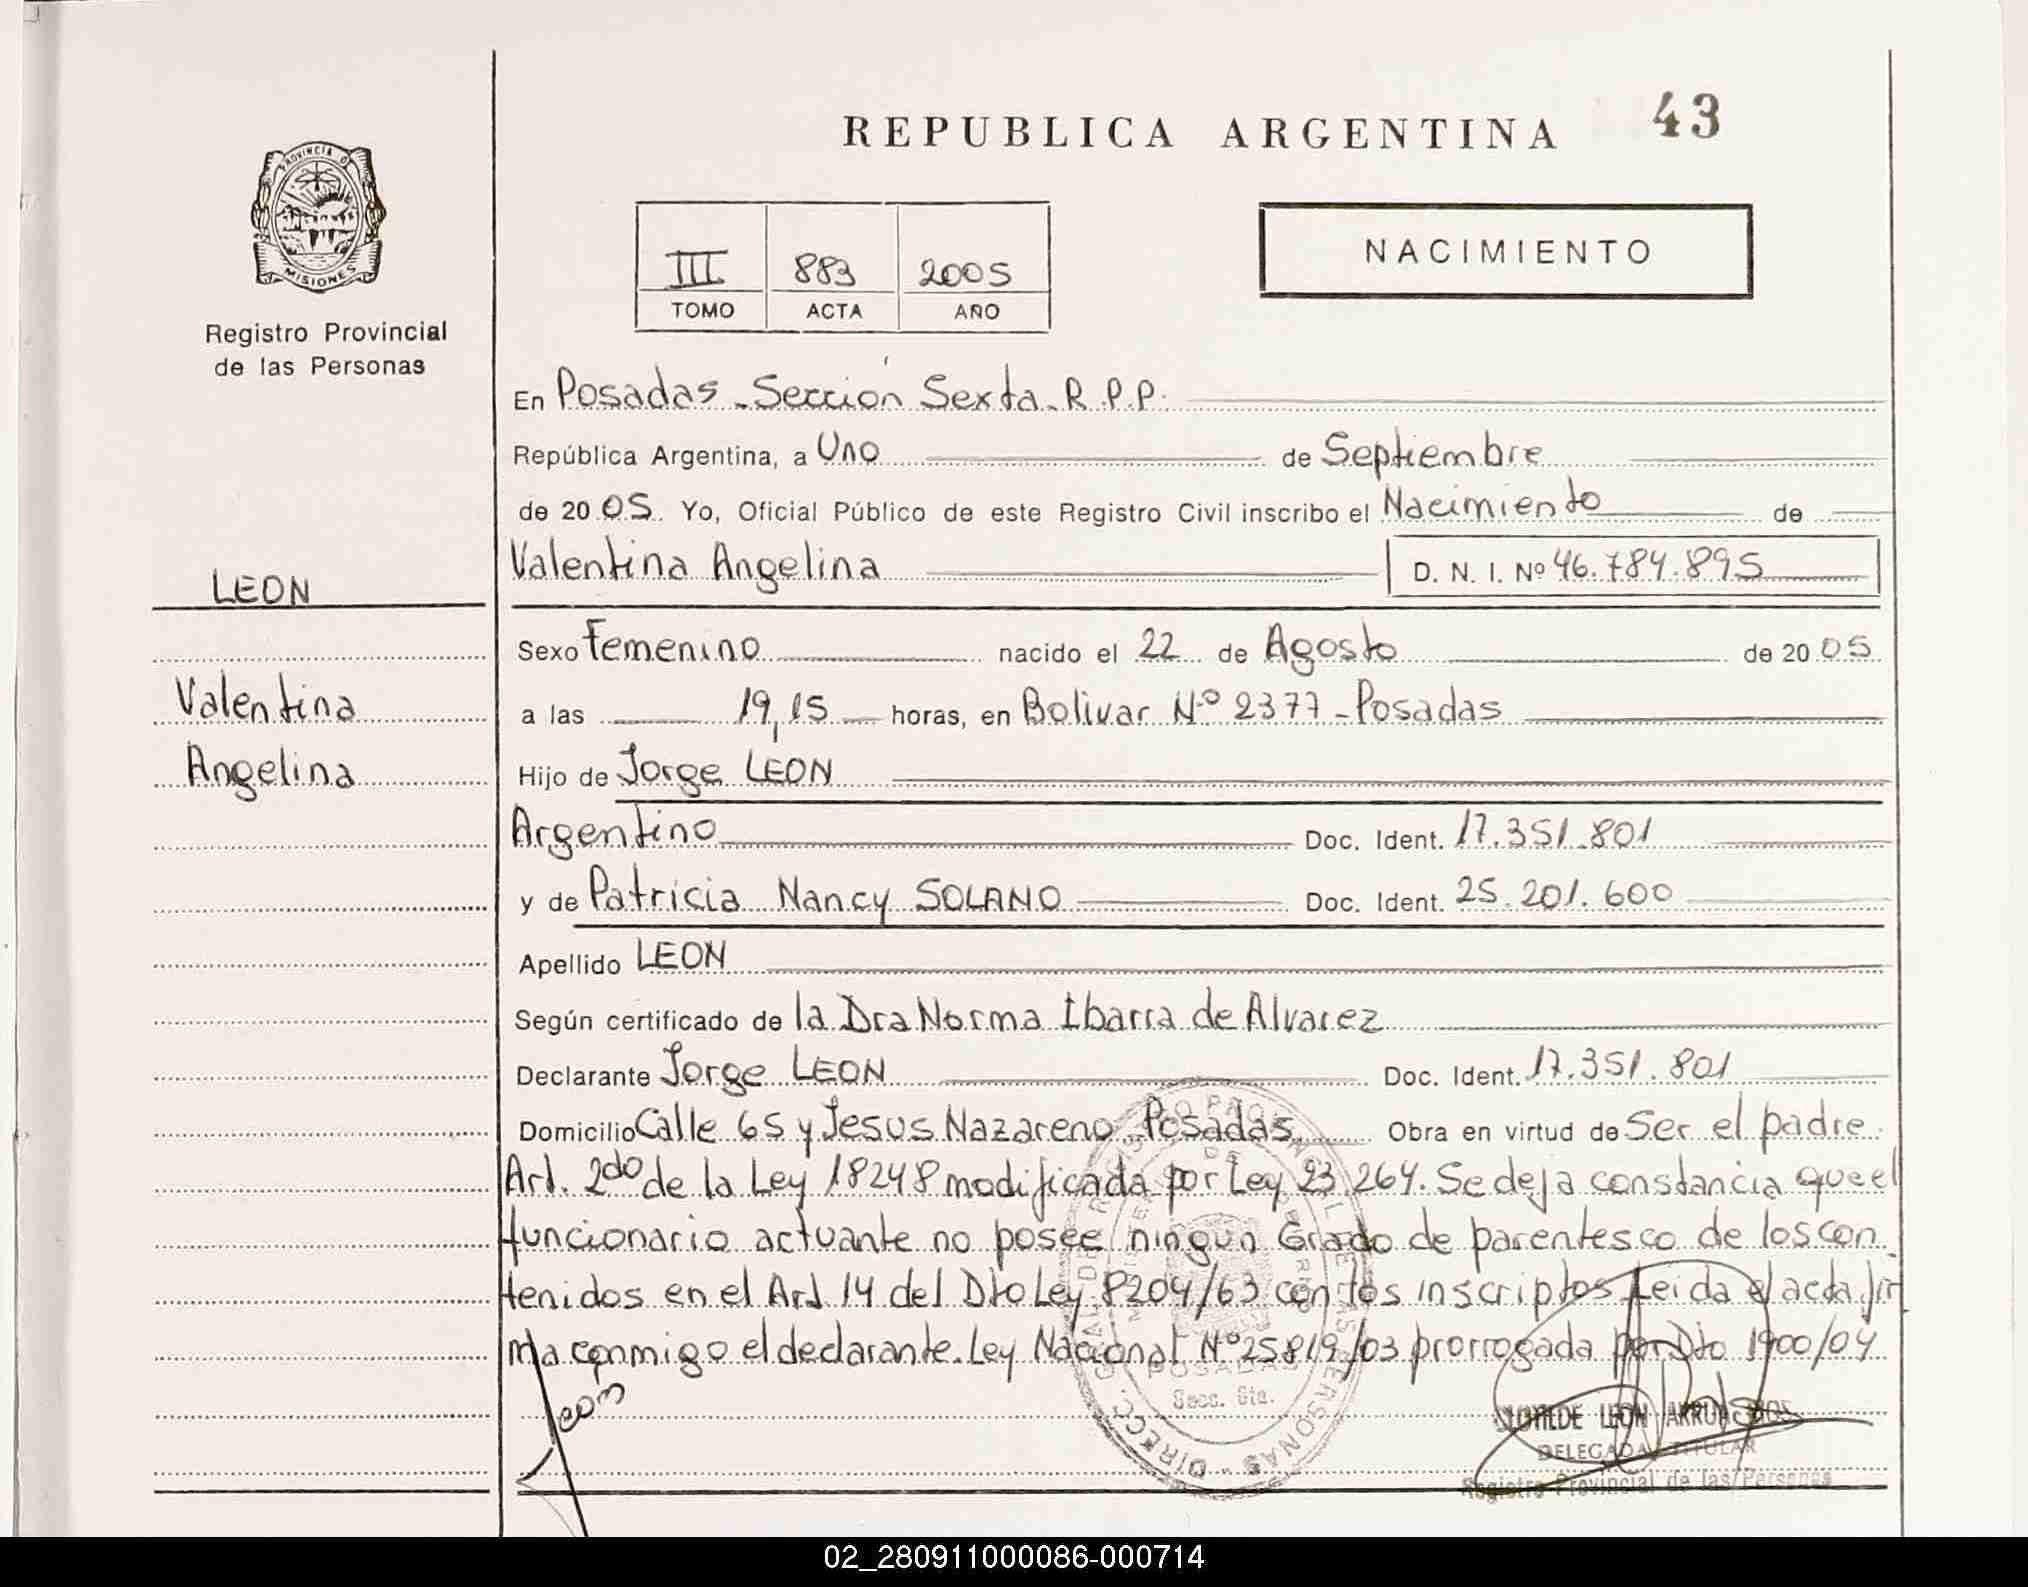 REPUBLICA ARGENTINA 43
PROVINCIA DE
MISIONES
Registro Provincial
de las Personas
III 883 2005
TOMO ACTA AÑO
NACIMIENTO
En Posadas - Sección Sexta - R.P.P.
República Argentina, a Uno de Septiembre
de 2005. Yo, Oficial Público de este Registro Civil inscribo el Nacimiento de
Valentina Angelina D. N. I. Nº 46.784.895
LEON
Valentina
Angelina
Sexo Femenino nacido el 22 de Agosto de 2005
a las 19,15 horas, en Bolivar Nº 2377 - Posadas
Hijo de Jorge LEON
Argentino Doc. Ident. 17.351.801
y de Patricia Nancy SOLANO Doc. Ident. 25.201.600
Apellido LEON
Según certificado de la Dra Norma Ibarra de Alvarez
Declarante Jorge LEON Doc. Ident. 17.351.801
Domicilio Calle 65 y Jesus Nazareno - Posadas Obra en virtud de Ser el padre.
Art. 2do de la Ley 18248 modificada por Ley 23.264. Se deja constancia que el
funcionario actuante no posee ningun Grado de parentesco de los con
tenidos en el Art 14 del Dto Ley 8204/63 con los inscriptos Leida el acta fir
ma conmigo el declarante. Ley Nacional Nº 25819/03 prorrogada por Dto 1900/04
Leon
POSADAS
Secc. 6ta.
CLOTILDE LEON
DELEGADA TITULAR
Registro Provincial de las Personas
02_280911000086-000714